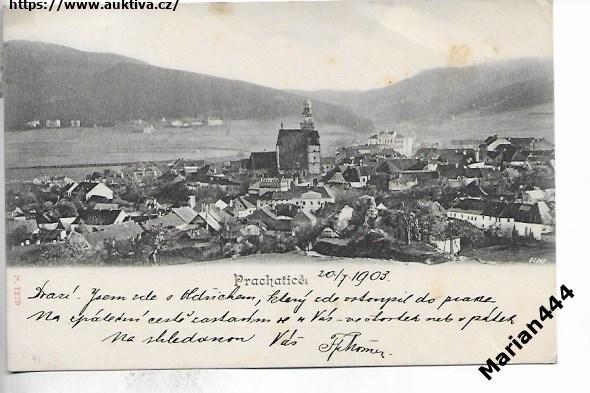 https://www.auktiva.cz/
Prachatice.
20/7 1903.
Drazí. Jsem zde s Oldřichem, který zde vstoupil do praxe
Na zpáteční cestě zastavím se u Vás - ve čtvrtek neb v pátek
Na shledanou Váš
S. 1279
Marian444